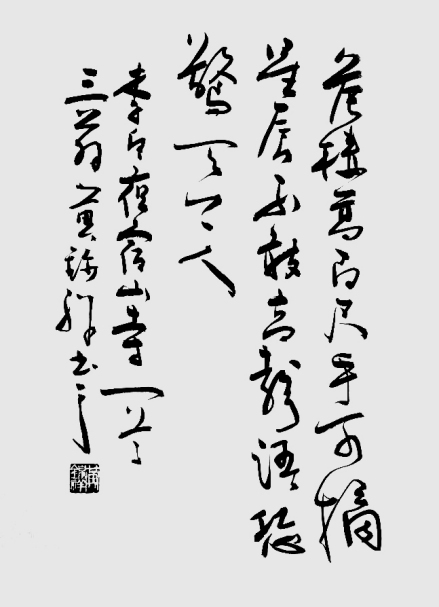 危樓高百尺手可摘
星辰不敢高聲語恐
驚天上人
李白夜宿山寺
三黄书